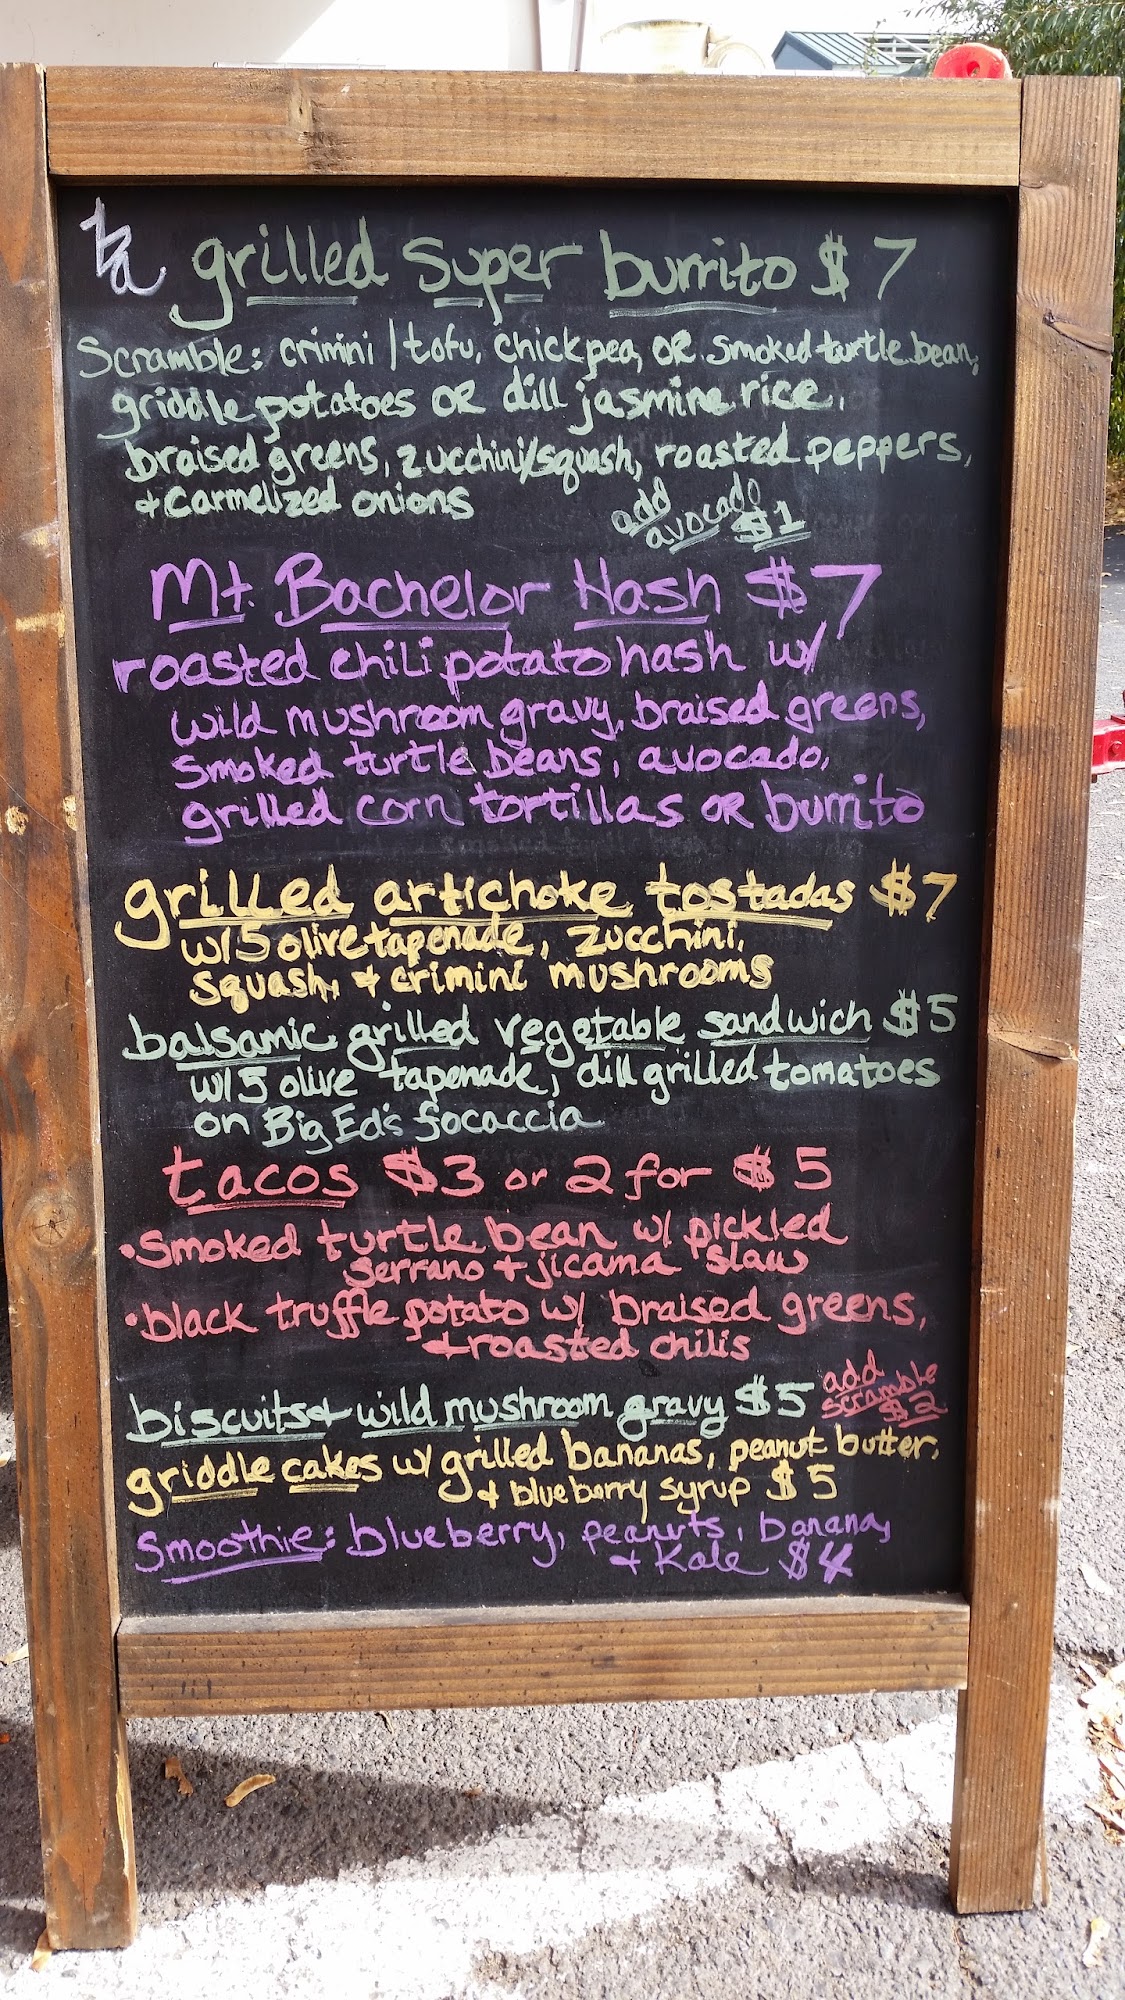 ta grilled super burrito $7
Scramble: crimini/tofu, chickpea, OR smoked turtle bean,
griddle potatoes OR dill jasmine rice,
braised greens, zucchini/squash, roasted peppers,
+ carmelized onions
add
avocado
$1
Mt. Bachelor Hash $7
roasted chili potato hash w/
wild mushroom gravy, braised greens,
smoked turtle beans, avocado,
grilled corn tortillas OR burrito
grilled artichoke tostadas $7
w/ 5 olive tapenade, zucchini,
squash, + crimini mushrooms
balsamic grilled vegetable sandwich $5
w/ 5 olive tapenade, dill grilled tomatoes
on Big Ed's focaccia
tacos $3 or 2 for $5
•Smoked turtle bean w/ pickled
serrano + jicama slaw
•black truffle potato w/ braised greens,
+ roasted chilis
biscuits + wild mushroom gravy $5
add
scramble
$2
griddle cakes w/ grilled bananas, peanut butter,
+ blueberry syrup $5
Smoothie: blueberry, peanuts, banana,
+ Kale $4